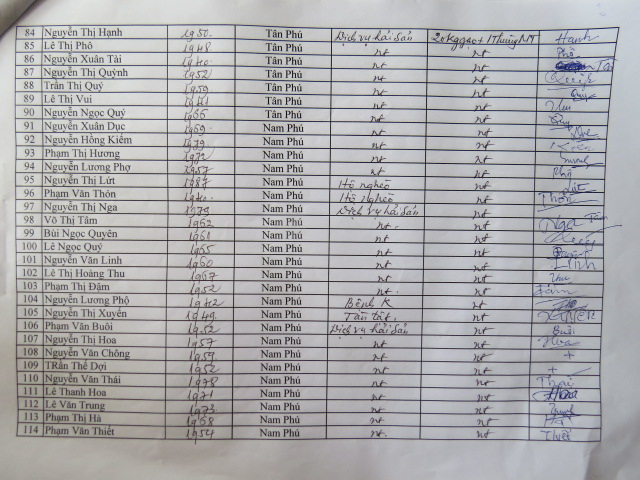 84 Nguyễn Thị Hạnh 1950. Tân Phú Dịch vụ hải sản 20kg gạo + 1 Thùng NT Hạnh
85 Lê Thị Phô 1948 Tân Phú nt nt Phô
86 Nguyễn Xuân Tài 1940 Tân Phú nt nt Tài
87 Nguyễn Thị Quỳnh 1952 Tân Phú nt nt
88 Trần Thị Quý 1959 Tân Phú nt nt Quý
89 Lê Thị Vui 1941 Tân Phú nt nt Vui
90 Nguyễn Ngọc Quý Tân Phú nt nt Quy
91 Nguyễn Xuân Dục 1969 Nam Phú nt nt
92 Nguyễn Hồng Kiếm 1979 Nam Phú nt nt
93 Phạm Thị Hương 1972 Nam Phú nt nt
94 Nguyễn Lương Phợ 1957 Nam Phú nt nt
95 Nguyễn Thị Lứt 1987 Nam Phú Hộ nghèo nt
96 Phạm Văn Thỏn Nam Phú Hộ nghèo nt
97 Nguyễn Thị Nga 1979 Nam Phú Dịch vụ hải sản nt
98 Võ Thị Tâm 1962 Nam Phú nt. nt Nga Tâm
99 Bùi Ngọc Quyên 1961 Nam Phú nt nt
100 Lê Ngọc Quý 1955 Nam Phú nt nt
101 Nguyễn Văn Linh 1960 Nam Phú nt nt Linh
102 Lê Thị Hoàng Thu 1967 Nam Phú nt nt Thu
103 Phạm Thị Đậm 1952 Nam Phú nt. nt Đậm
104 Nguyễn Lương Phộ 1942 Nam Phú Bệnh K nt
105 Nguyễn Thị Xuyến 1949 Nam Phú Tàn tật. nt
106 Phạm Văn Buôi 1952 Nam Phú Dịch vụ hải sản nt Buôi
107 Nguyễn Thị Hoa 1957 Nam Phú nt nt Hoa
108 Nguyễn Văn Chông 1959 Nam Phú nt nt +
109 TRần Thể Dợi 1952 Nam Phú nt nt +
110 Nguyễn Văn Thái 1978 Nam Phú nt nt Thái
111 Lê Thanh Hoa 1971 Nam Phú nt nt Hoa
112 Lê Văn Trung 1973 Nam Phú nt nt
113 Phạm Thị Hà 1968 Nam Phú nt nt Hà
114 Phạm Văn Thiết 1954 Nam Phú nt. nt Thiết